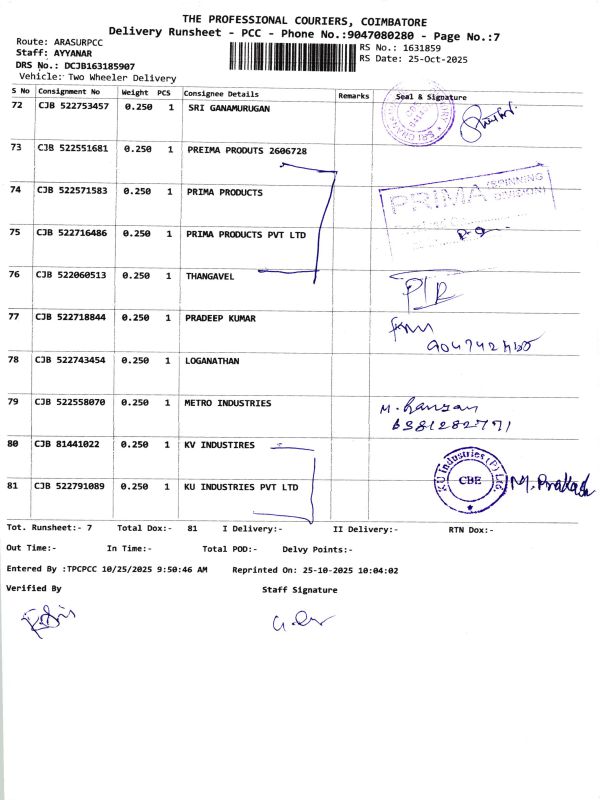 THE PROFESSIONAL COURIERS, COIMBATORE
Delivery Runsheet - PCC - Phone No.:9047080280 - Page No.:7
Route: ARASURPCC
Staff: AYYANAR
DRS No.: DCJB163185907
Vehicle: Two Wheeler Delivery
RS No.: 1631859
RS Date: 25-Oct-2025
S No Consignment No Weight PCS Consignee Details Remarks Seal & Signature
72 CJB 522753457 0.250 1 SRI GANAMURUGAN
73 CJB 522551681 0.250 1 PREIMA PRODUTS 2606728
74 CJB 522571583 0.250 1 PRIMA PRODUCTS
PRIMA (SPINNING DIVISION)
75 CJB 522716486 0.250 1 PRIMA PRODUCTS PVT LTD
76 CJB 522060513 0.250 1 THANGAVEL
77 CJB 522718844 0.250 1 PRADEEP KUMAR
78 CJB 522743454 0.250 1 LOGANATHAN
79 CJB 522558070 0.250 1 METRO INDUSTRIES
6381282771
80 CJB 81441022 0.250 1 KV INDUSTIRES
KU Industries (P) Ltd
CBE
M. Prakash
81 CJB 522791089 0.250 1 KU INDUSTRIES PVT LTD
Tot. Runsheet:- 7 Total Dox:- 81 I Delivery:- II Delivery:- RTN Dox:-
Out Time:- In Time:- Total POD:- Delvy Points:-
Entered By :TPCPCC 10/25/2025 9:50:46 AM Reprinted On: 25-10-2025 10:04:02
Verified By Staff Signature